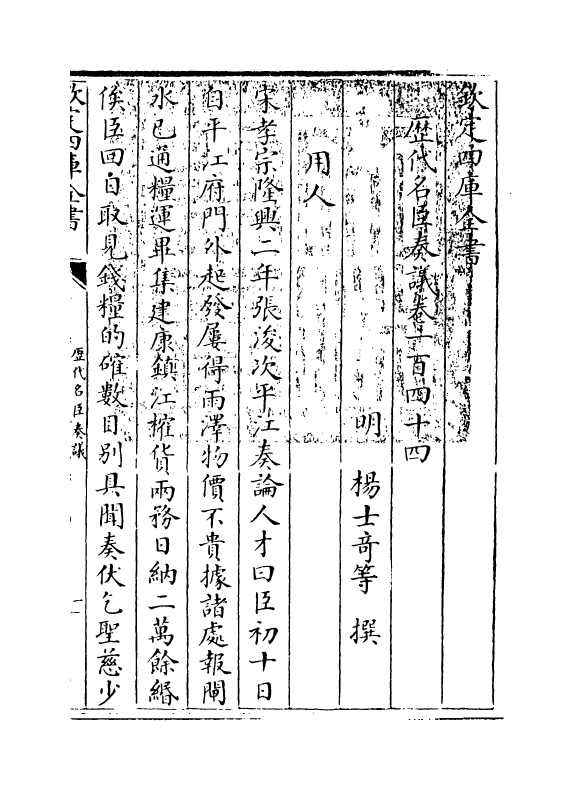 欽定四庫全書
歴代名臣奏議卷一百四十四
明 楊士奇等 撰
用人
宋孝宗隆興二年張浚次平江奏論人才曰臣初十日
自平江府門外起發屢得雨澤物價不貴據諸處報閘
水已通糧運畢集建康鎮江榷貨兩務日納二萬餘緡
俟臣回自取見錢糧的確數目别具聞奏伏乞聖慈少
欽定四庫全書
歴代名臣奏議